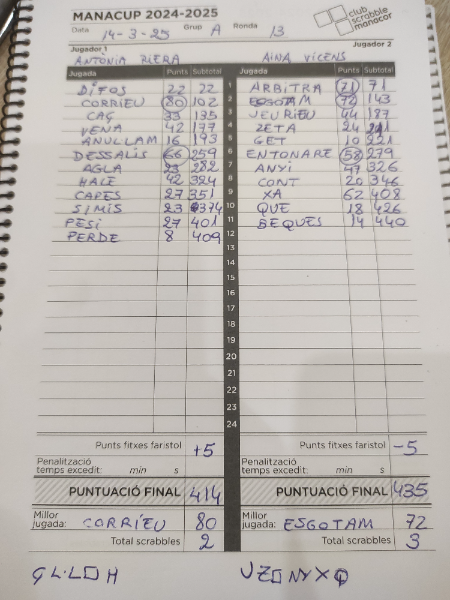 MANACUP 2024-2025
club scrabble manacor
Data 14-3-25 Grup A Ronda 13
Jugador 1 Jugador 2
ANTÒNIA RIERA AINA VICENS
Jugada Punts Subtotal Jugada Punts Subtotal
DIFOS 22 22 1 ARBITRA 71 71
CORRIEU 80 102 2 ESGOTAM 72 143
CAÇ 33 135 3 JEURIEU 44 187
VENA 42 177 4 ZETA 24 211
ANUL·LAM 16 193 5 GET 10 221
DESSALIS 66 259 6 ENTONARE 58 279
AGLA 23 282 7 ANYI 47 326
HALE 42 324 8 CONT 20 346
CAPES 27 351 9 XA 62 408
SIMIS 23 374 10 QUE 18 426
PESI 27 401 11 BEQUES 14 440
PERDE 8 409 12
13
14
15
16
17
18
19
20
21
22
23
24
Punts fitxes faristol +5 Punts fitxes faristol -5
Penalització temps excedit: min s Penalització temps excedit: min s
PUNTUACIÓ FINAL 414 PUNTUACIÓ FINAL 435
Millor jugada: CORRIEU 80 Millor jugada: ESGOTAM 72
Total scrabbles 2 Total scrabbles 3